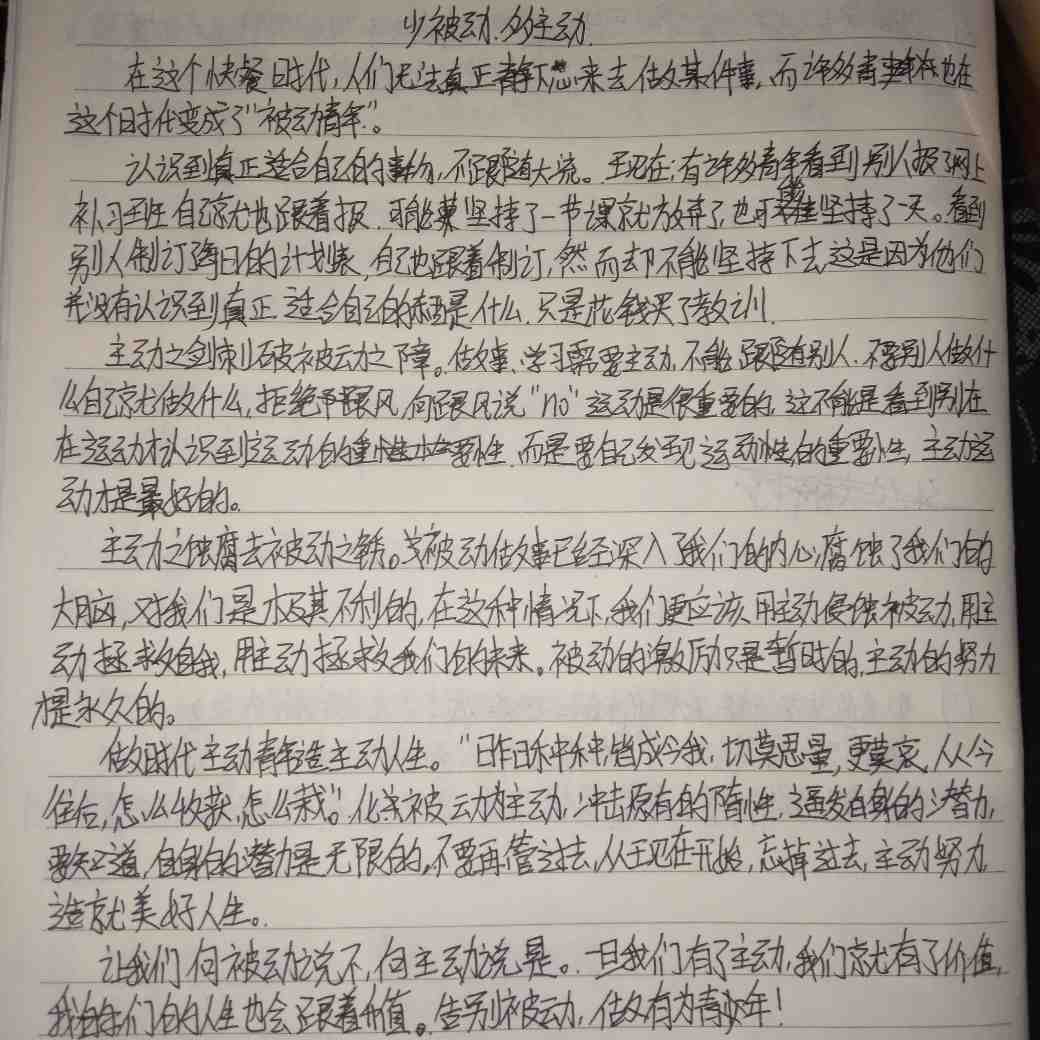 少被动、多主动
在这个快餐日时代,人们无法真正静下心来去做某件事,而许多青年也在
这个日时代变成了"被动青年"。
认识到真正适合自己的事物,不跟随大流。现在,有许多青年看到别人报了网上
补习班自己就也跟着报,可能坚持了一节课就放弃了,也可能坚持了一天。看到
别人制订每日的计划表,自己也跟着制订,然而却不能坚持下去,这是因为他们
并没有认识到真正适合自己的东西是什么,只是花钱买了教训。
主动之剑刺破被动之障。做事、学习需要主动,不能跟随别人,不要别人做什
么自己就做什么,拒绝跟风,向跟风说"no"运动是很重要的,这不能是看到别在
在运动才认识到运动的重要性,而是要自己发现运动性的重要性,主动运
动才是最好的。
主动之蚀腐去被动之锈。被动做事已经深入了我们的内心,腐蚀了我们的
大脑,对我们是极其不利的,在这种情况下,我们更应该用主动侵蚀被动,用主
动拯救自我,用主动拯救我们的未来。被动的激励只是暂时的,主动的努力
才是永久的。
做时代主动青年造主动人生。"昨日种种,皆成今我,切莫思量,更莫哀,从今
往后,怎么收获,怎么栽"。化被动为主动,冲击原有的隋性,逼发自身的潜力,
要知道,自身的潜力是无限的,不要再管过去,从现在开始,忘掉过去,主动努力,
造就美好人生。
让我们向被动说不,向主动说是。一旦我们有了主动,我们就有了价值,
我们的人生也会跟着价值。告别被动,做有为青少年!